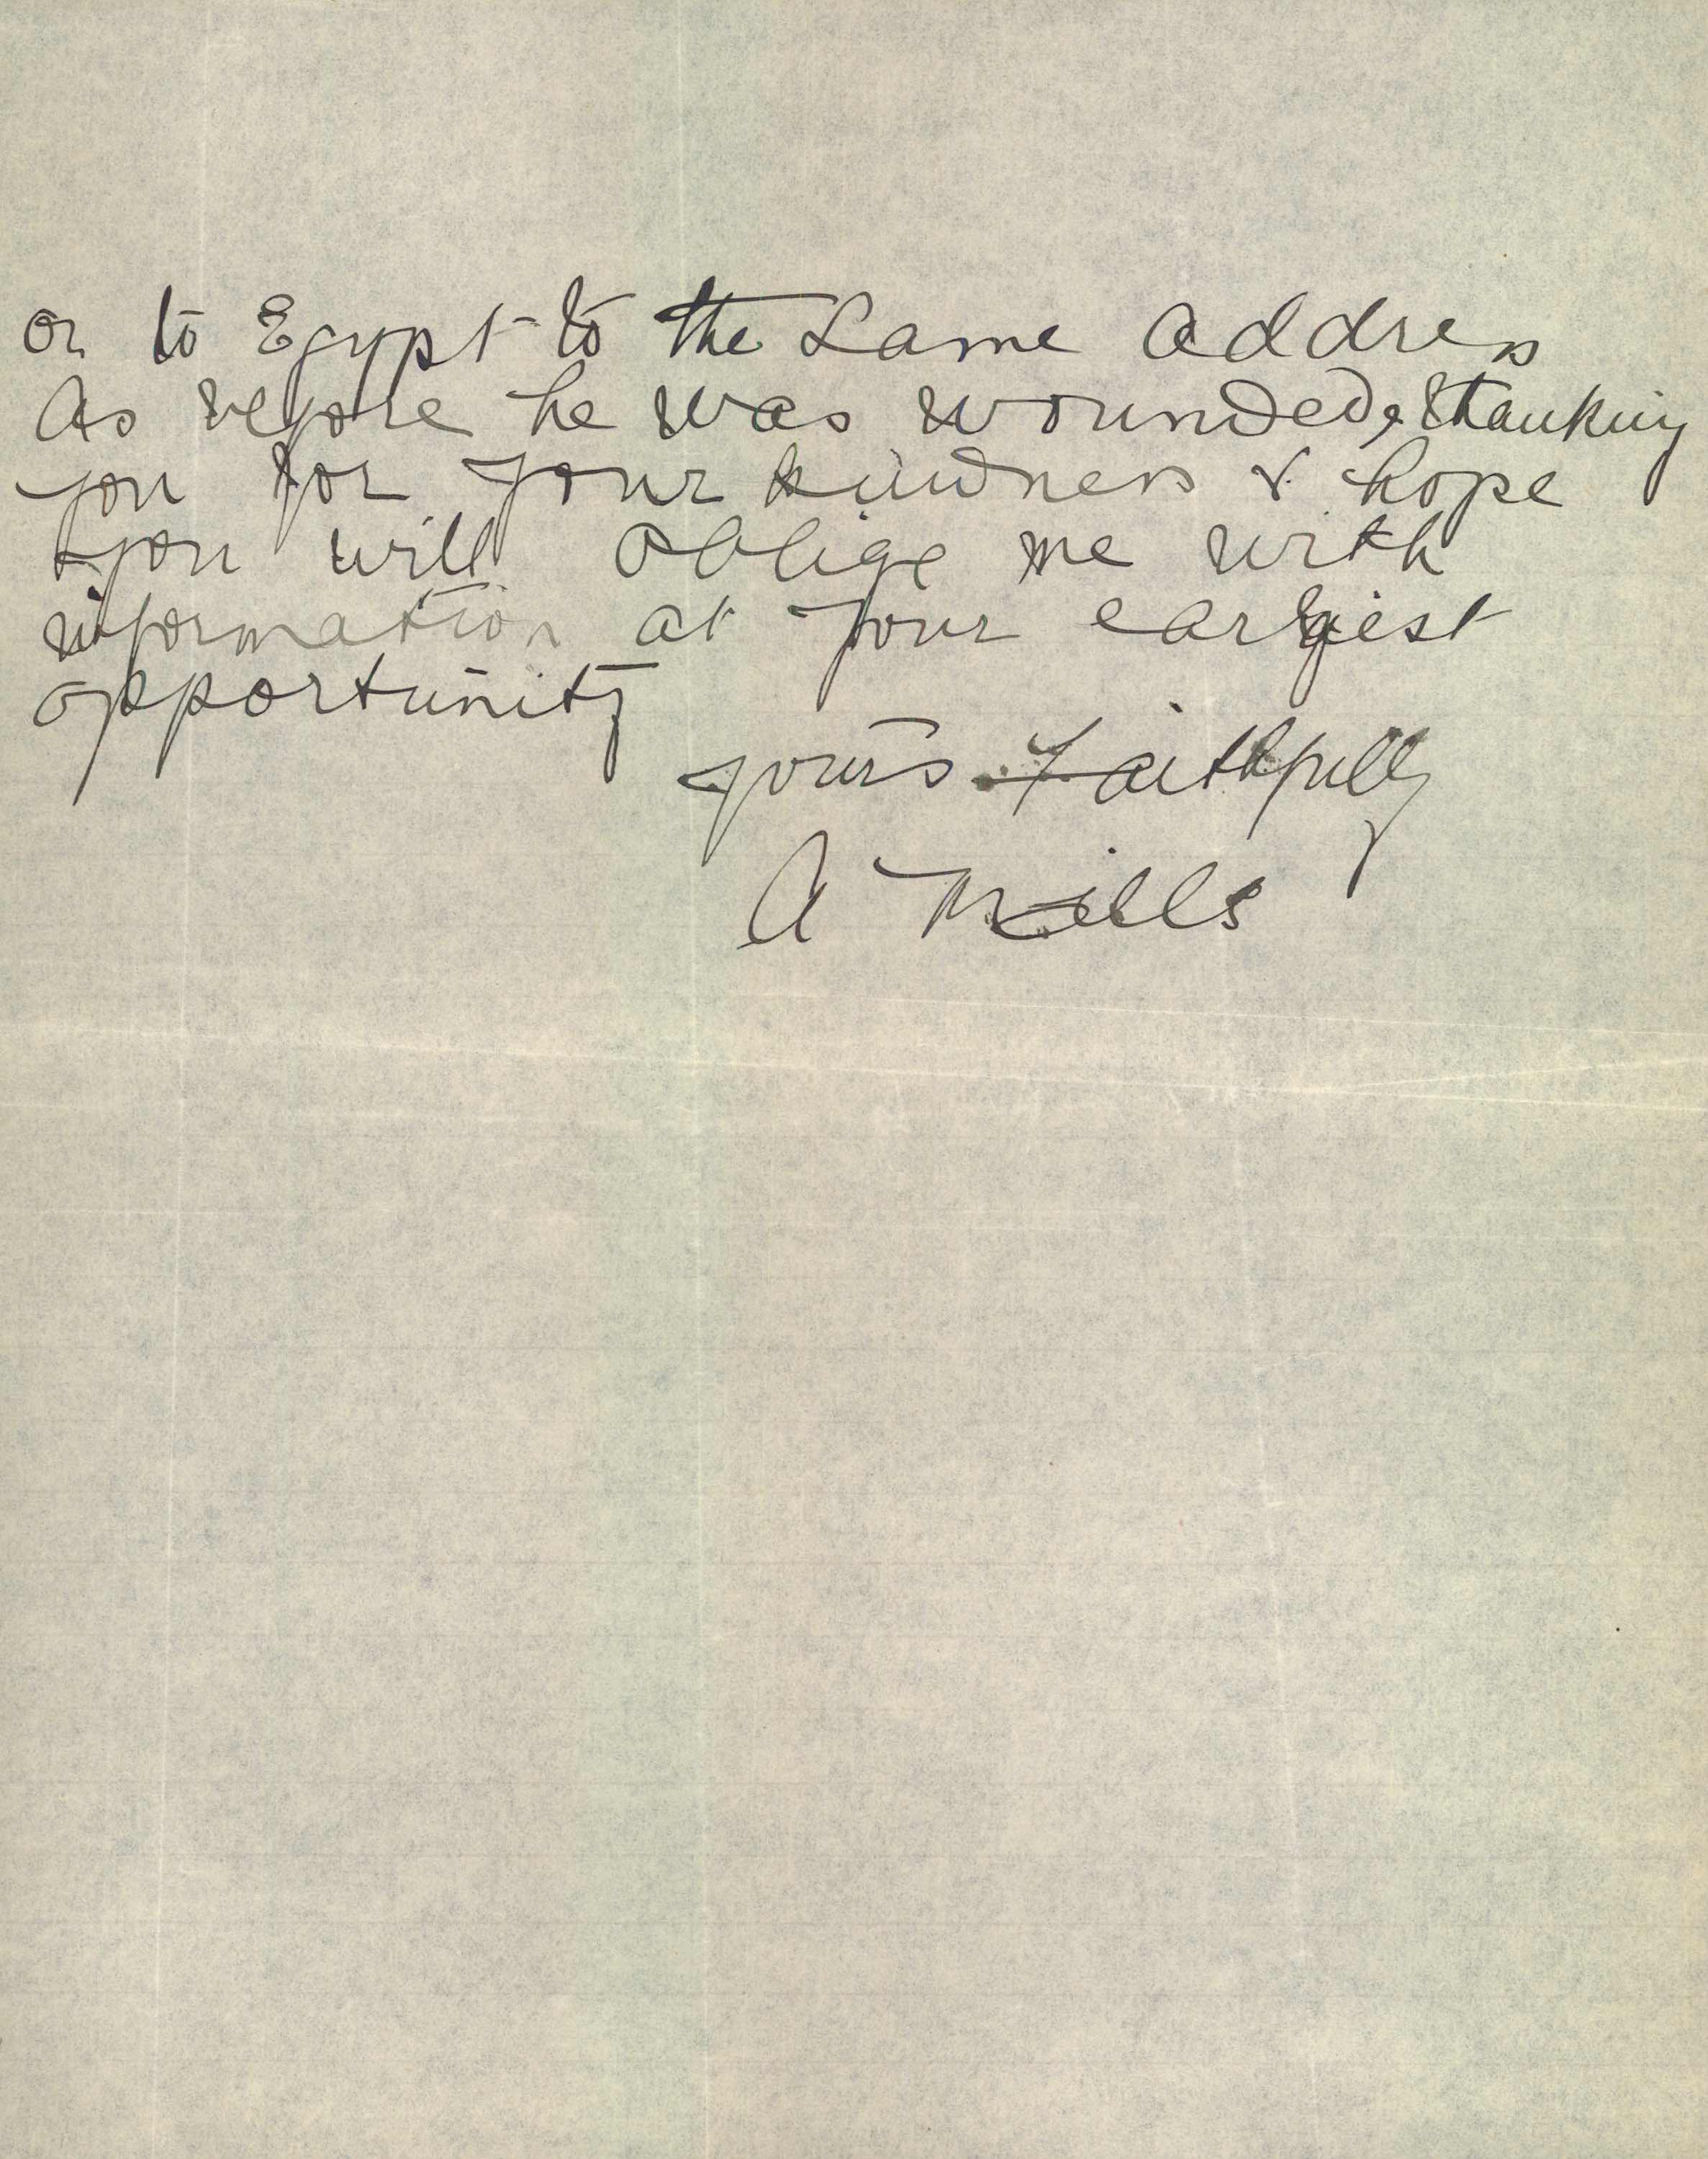 or to Egypt to the Same address
As before he was wounded, thanking
you for your kindness & hope
you will oblige me with
information at your earliest
opportunity
yours faithfully
A Mills